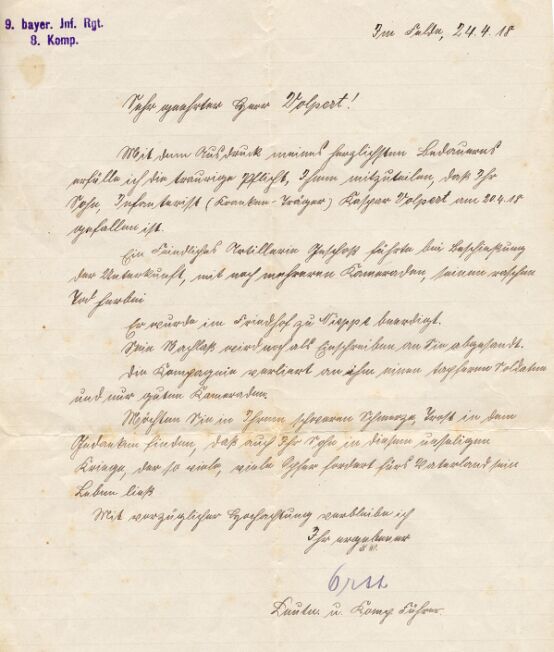 9. bayer. Inf. Rgt.
8. Komp.
Im Felde, 24.4.18
Sehr geehrter Herr Volpert!
Mit dem Ausdruck meines herzlichsten Bedauerns
erfülle ich die traurige Pflicht, Ihnen mitzuteilen, daß Ihr
Sohn, Infanterist (Kranken-Träger) Kaspar Volpert am 20.4.18
gefallen ist.
Ein feindliches Artillerie Geschoß führte bei Beschießung
der Unterkunft, mit noch mehreren Kameraden, seinen raschen
Tod herbei
Er wurde im Friedhof zu Nieppe beerdigt.
Sein Nachlaß wird noch als Einschreiben an Sie abgesandt.
Die Kompagnie verliert an ihm einen tapferen Soldaten
und nur guten Kameraden.
Möchten Sie in Ihrem schweren Schmerze, Trost in dem
Gedanken finden, daß auch Ihr Sohn in diesem unseligen
Kriege, der so viele, viele Opfer fordert fürs Vaterland sein
Leben ließ
Mit vorzüglicher Hochachtung verbleibe ich
Ihr ergebener
Leutn. u. Komp Führer